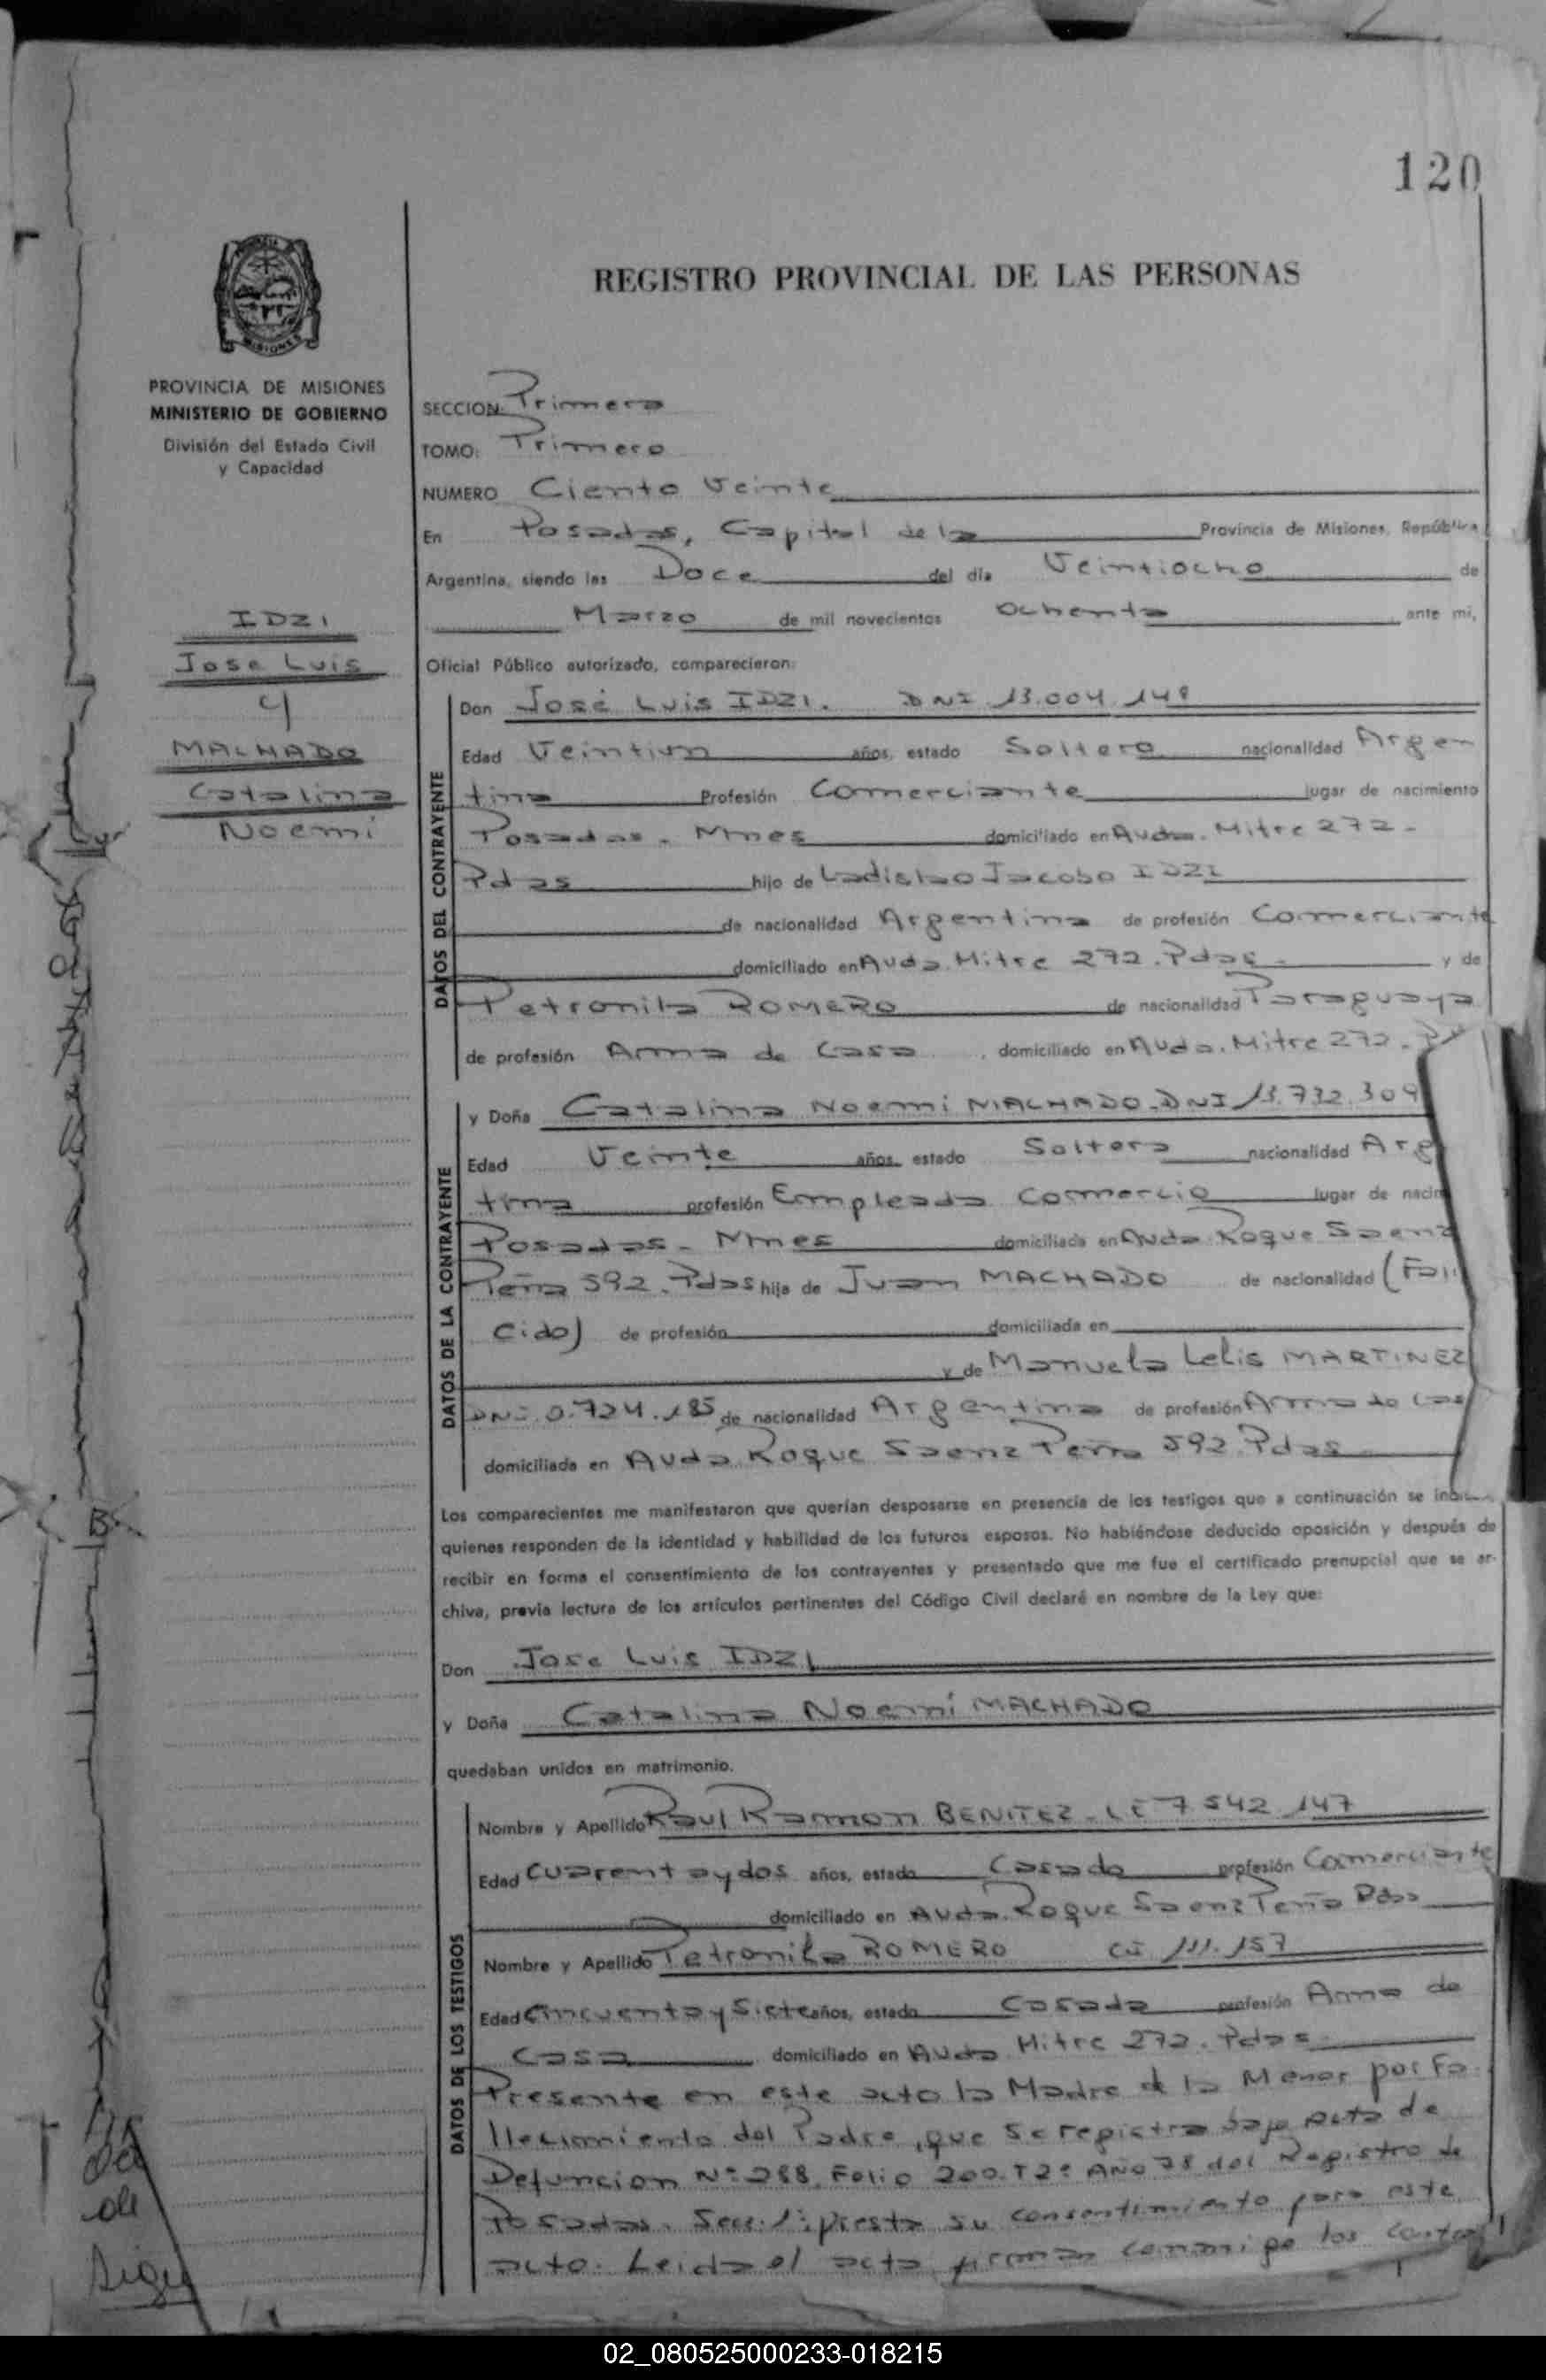 120
REGISTRO PROVINCIAL DE LAS PERSONAS
MISIONES
PROVINCIA DE MISIONES
MINISTERIO DE GOBIERNO
División del Estado Civil
y Capacidad
IDZI
Jose Luis
y
MACHADO
Catalina
Noemí
SECCION: Primera
TOMO: Primero
NUMERO Ciento Veinte
En Posadas, Capital de la Provincia de Misiones, República
Argentina, siendo las Doce del día Veintiocho de
Marzo de mil novecientos Ochenta ante mi,
Oficial Público autorizado, comparecieron:
DATOS DEL CONTRAYENTE
Don José Luis IDZI. DNI 13.004.148
Edad Veintiun años, estado Soltero nacionalidad Argen
tina Profesión Comerciante lugar de nacimiento
Posadas - Mnes domiciliado en Avda. Mitre 272 -
Pdas hijo de Ladislao Jacobo IDZI
de nacionalidad Argentina de profesión Comerciante
domiciliado en Avda. Mitre 272. Pdas - y de
Petronila ROMERO de nacionalidad Paraguaya
de profesión Ama de Casa , domiciliado en Avda. Mitre 272.
DATOS DE LA CONTRAYENTE
y Doña Catalina Noemí MACHADO. DNI 13.732.309
Edad Veinte años, estado Soltera nacionalidad Arg
tina profesión Empleada Comercio lugar de nacim
Posadas - Mnes domiciliada en Avda Roque Saenz
Peña 592. Pdas hija de Juan MACHADO de nacionalidad (Fall
cido) de profesión domiciliada en
y de Manuela Lelis MARTINEZ
DNI 0.724.185 de nacionalidad Argentina de profesión Ama de Cas
domiciliada en Avda Roque Saenz Peña 592. Pdas
Los comparecientes me manifestaron que querían desposarse en presencia de los testigos que a continuación se indi
quienes responden de la identidad y habilidad de los futuros esposos. No habiéndose deducido oposición y después de
recibir en forma el consentimiento de los contrayentes y presentado que me fue el certificado prenupcial que se ar-
chiva, previa lectura de los artículos pertinentes del Código Civil declaré en nombre de la Ley que:
Don Jose Luis IDZI
y Doña Catalina Noemí MACHADO
quedaban unidos en matrimonio.
DATOS DE LOS TESTIGOS
Nombre y Apellido Raul Ramon BENITEZ - LE 7.542.147
Edad Cuarenta y dos años, estado Casado profesión Comerciante
domiciliado en Avda. Roque Saenz Peña Pdas
Nombre y Apellido Petronila ROMERO CI 111.157
Edad Cincuenta y Siete años, estado Casada profesión Ama de
Casa domiciliado en Avda Mitre 272. Pdas
Presente en este acto la Madre de la Menor por Fa-
llecimiento del Padre, que se registra bajo Acta de
Defuncion Nº 288, Folio 200. T 2º Año 78 del Registro de
Posadas. Secc. 1ª; presta su consentimiento para este
acto. Leida el acta firman conmigo los contra
02_080525000233-018215